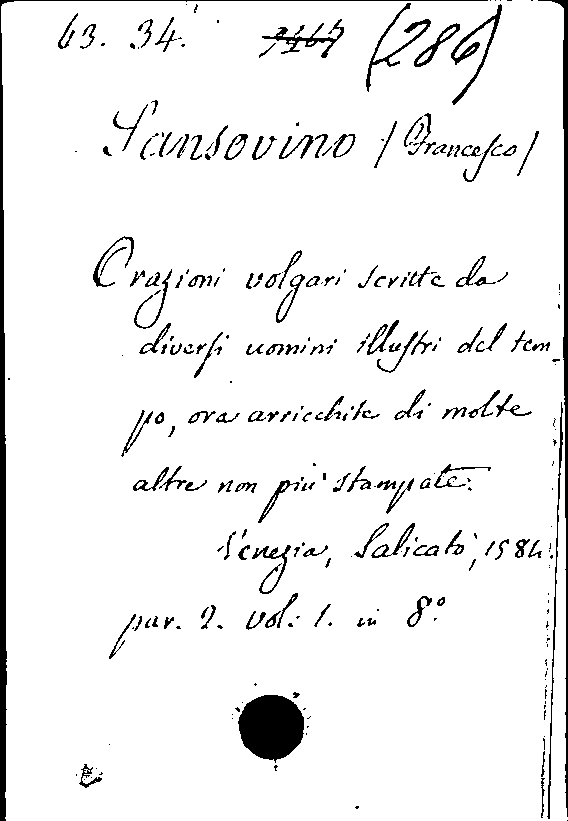 63. 34. (286)
Sansovino / Francesco /
Orazioni volgari scritte da
diversi uomini illustri del tem
po, ora arricchite di molte
altre non più stampate.
Venezia, Salicato, 1584.
par. 2. vol. 1. in 8º